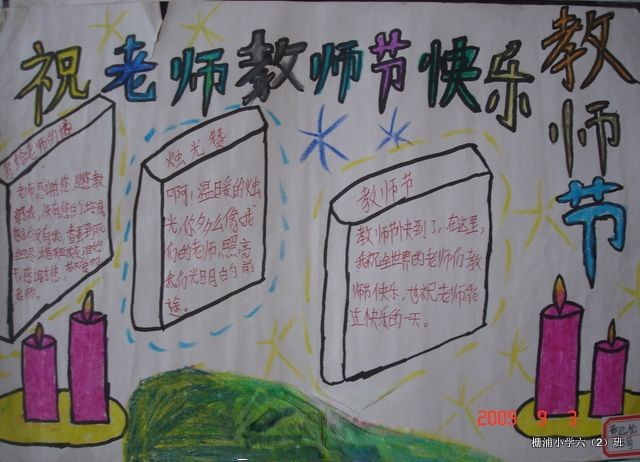 祝老师教师节快乐
教师节
写给老师的话
老师感谢您是您教
烛光赞
啊！温暖的烛
光，你多么像我
们的老师照亮
我们光明的前
途。
教师节
教师节快到了，在这里，
我祝全世界的老师们教
师节快乐，也祝老师能
过快乐的一天。
老师。
2009 9 3
棚浦小学六（2）班